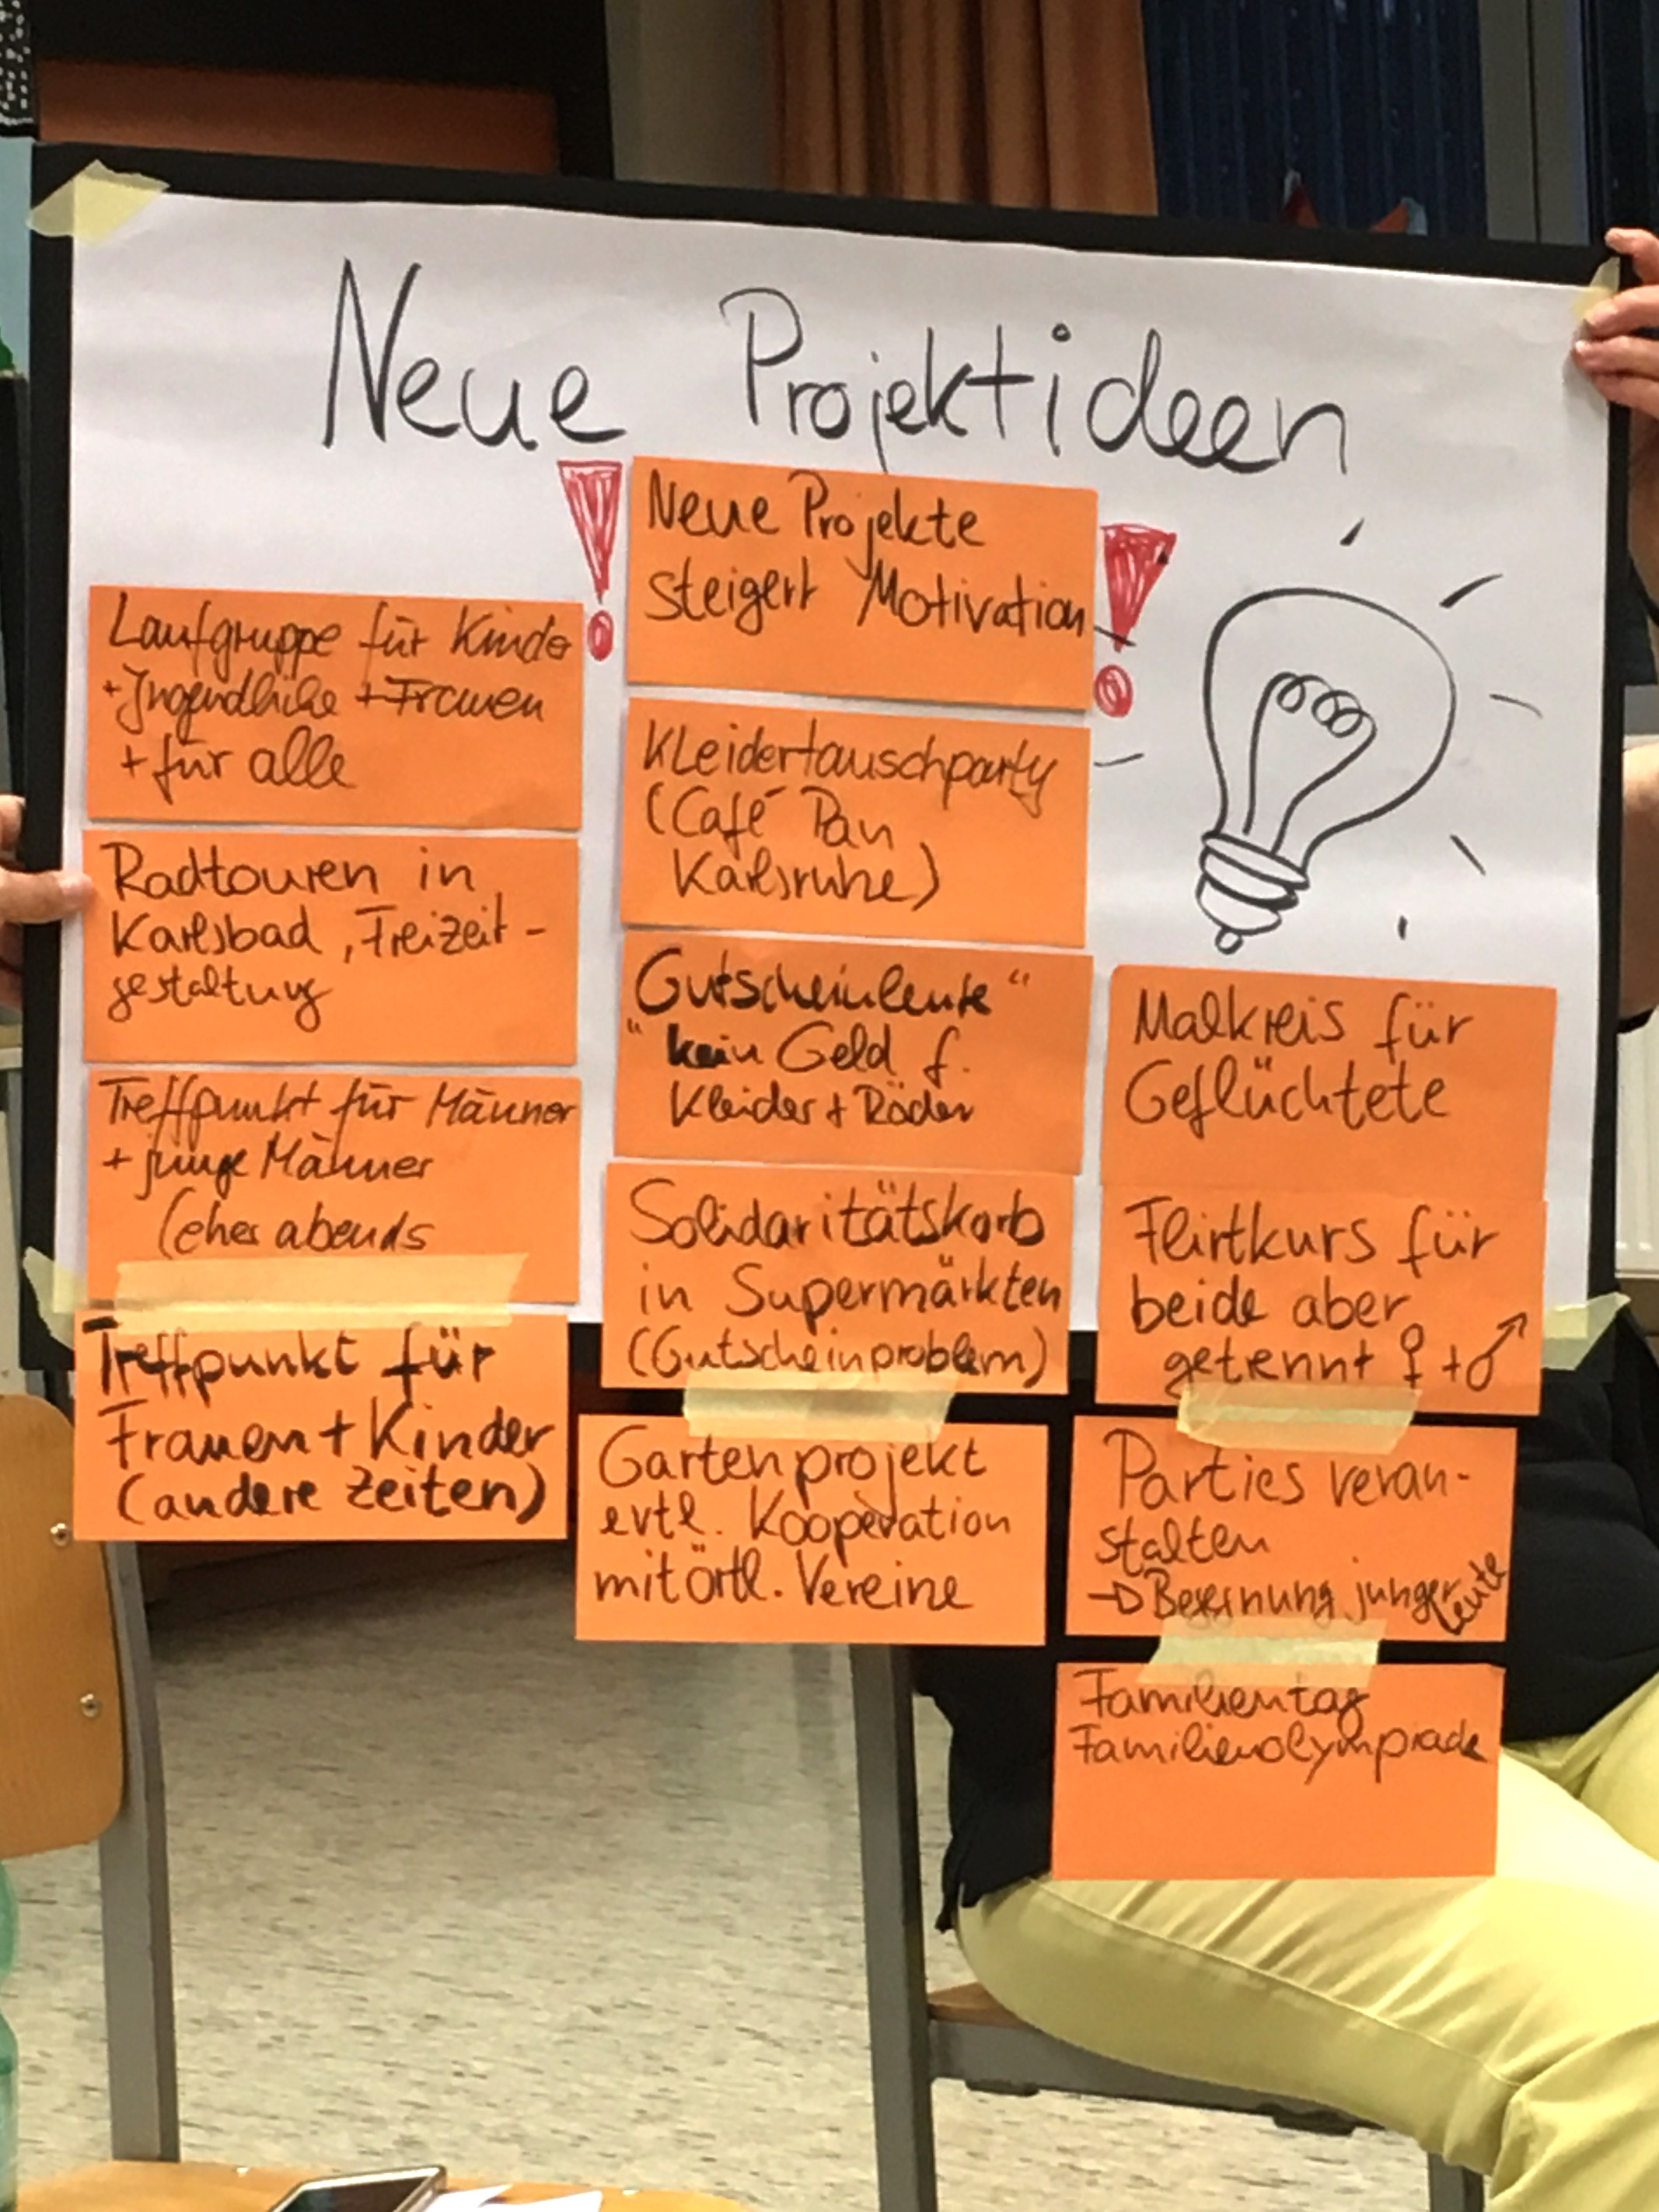 Neue Projektideen
Laufgruppe für Kinder
+ Jugendliche + Frauen
+ für alle
Radtouren in
Karlsbad, Freizeit-
gestaltung
Treffpunkt für Männer
+ junge Männer
(eher abends
Treffpunkt für
Frauen + Kinder
(andere Zeiten)
! Neue Projekte !
steigert Motivation
Kleidertauschparty
(Café Pan
Karlsruhe)
Gutscheinleute"
" kein Geld f.
Kleider + Räder
Solidaritätskorb
in Supermärkten
(Gutscheinproblem)
Gartenprojekt
evtl. Kooperation
mit örtl. Vereine
Malkreis für
Geflüchtete
Flirtkurs für
beide aber
getrennt ♀ + ♂
Parties veran-
stalten
→ junger Leute
Familientag
Familienolympiade